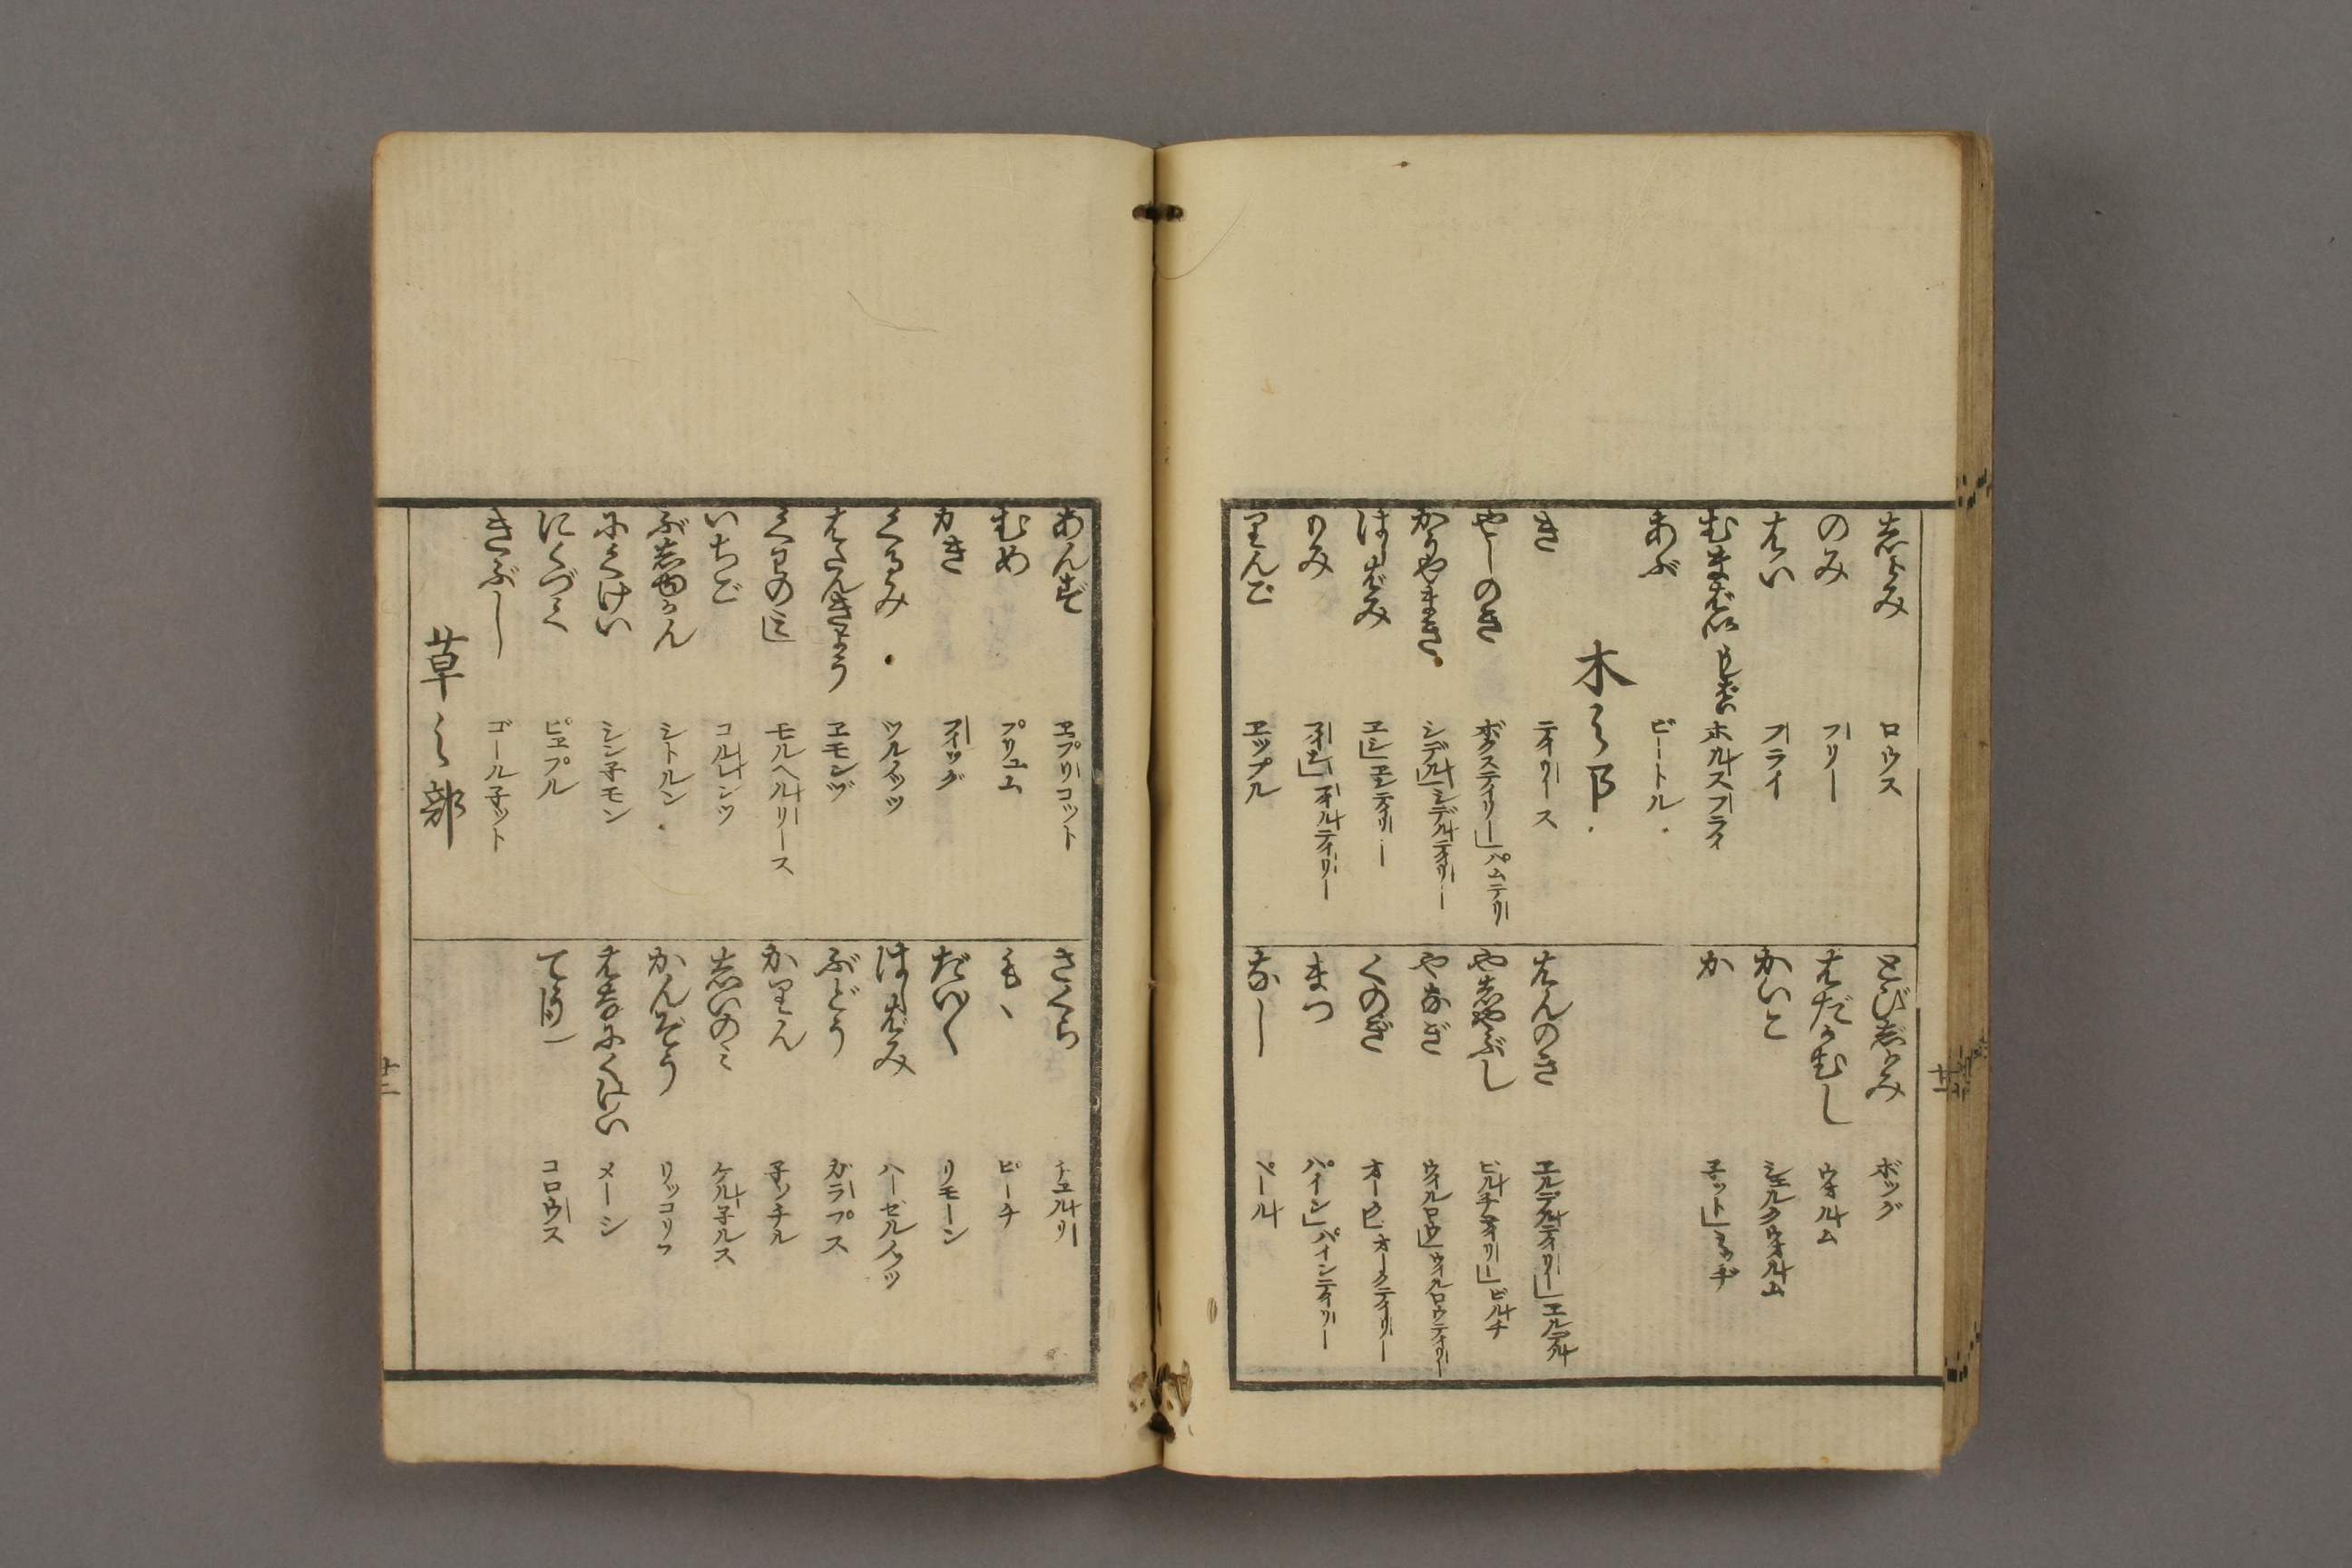 志らみ　ロウス
のみ　フリー
はい　フライ
むまばい　ホルスフライ
あぶ　ビートル
木之部
き　ティリース
やしのき　ボクスティリー」パムテリ
からやまき　シデル」シデルティリー
はしばみ　エシ」エシティリー
もみ
りんご　エップル
とびむし　ボッグ
はだかむし　ウオルム
かいこ　シェルクウオルム
か
はんのき　エルデルティリー」エルデル
や志やぶし　ビルチティリー」ビルチ
やなぎ　ウイルロウ」ウイルロウティリー
くのぎ　オーク」オークティリー
まつ　パイン」パインティリー
なし　ペール
あんず　エプリコット
むめ　プリュム
かき　フイッグ
くるみ　ツルノッツ
はたんきょう　エモンヅ
くわのミ　モルヘルリース
いちご　コルレンツ
ぶ志ゅかん　シトルン
にくけい　シン子モン
にくづく　ピエプル
きぶし　ゴール子ット
草之部
さくら　チエルリー
もゝ　ピーチ
だい〳〵　リモーン
はしばみ　ハーゼルノッツ
ぶどう　ガラプス
かりん　子ソチル
志いのミ　ケル子ルス
かんぞう　リッコリフ
はなにくけい　メーシ
てうじ　コロウス
廿一
廿二